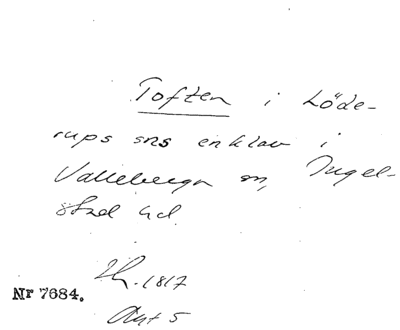 Toften i Löde-
rups sns enklav i
Valleberga sn, Ingel-
stad hd.
1817
Nr 7684.
Avt 5